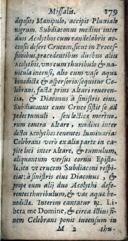 Missalia. 179
deposito Manipulo, accipit Pluviale
nigrum. Subdiaconus medius inter
duos Acolythos cum candelabris ac-
censis defert Crucem, sicut in Proces-
sionibus, præcedentibus duobus aliis
Acolythis, uno cum thuribulo & na-
vicula incensi, alio cum vase aquæ
benedictæ & aspersorio; sequitur Ce-
lebrans, facta prius Altari reveren-
tia, & Diaconus à sinistris ejus.
Subdiaconus cum Cruce sistit se ad
pedes tumuli
contra Altare, medius inter
dictos Acolythos tenentes luminaria:
Celebrans verò ex alia parte in ca-
pite loci inter Altare, & tumulum,
aliquantum versus cornu Episto-
læ, ita ut Crucem Subdiaconi respi-
ciat: à sinistris ejus Diaconus, &
prope eum alij duo Acolythi defe-
rentes thuribulum, & aquam be-
nedictam. Interim cantatur ℟. Li-
bera me Domine, & circa finem
Celebrans ponit incensum in
M 2 thu-